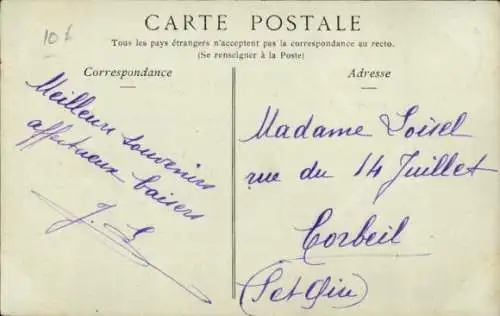 10 f
CARTE POSTALE
Tous les pays étrangers n'acceptent pas la correspondance au recto.
(Se renseigner à la Poste)
Correspondance
Adresse
Meilleurs souvenirs
affectueux baisers
Madame Loisel
rue du 14 Juillet
Corbeil
(S et Oise)